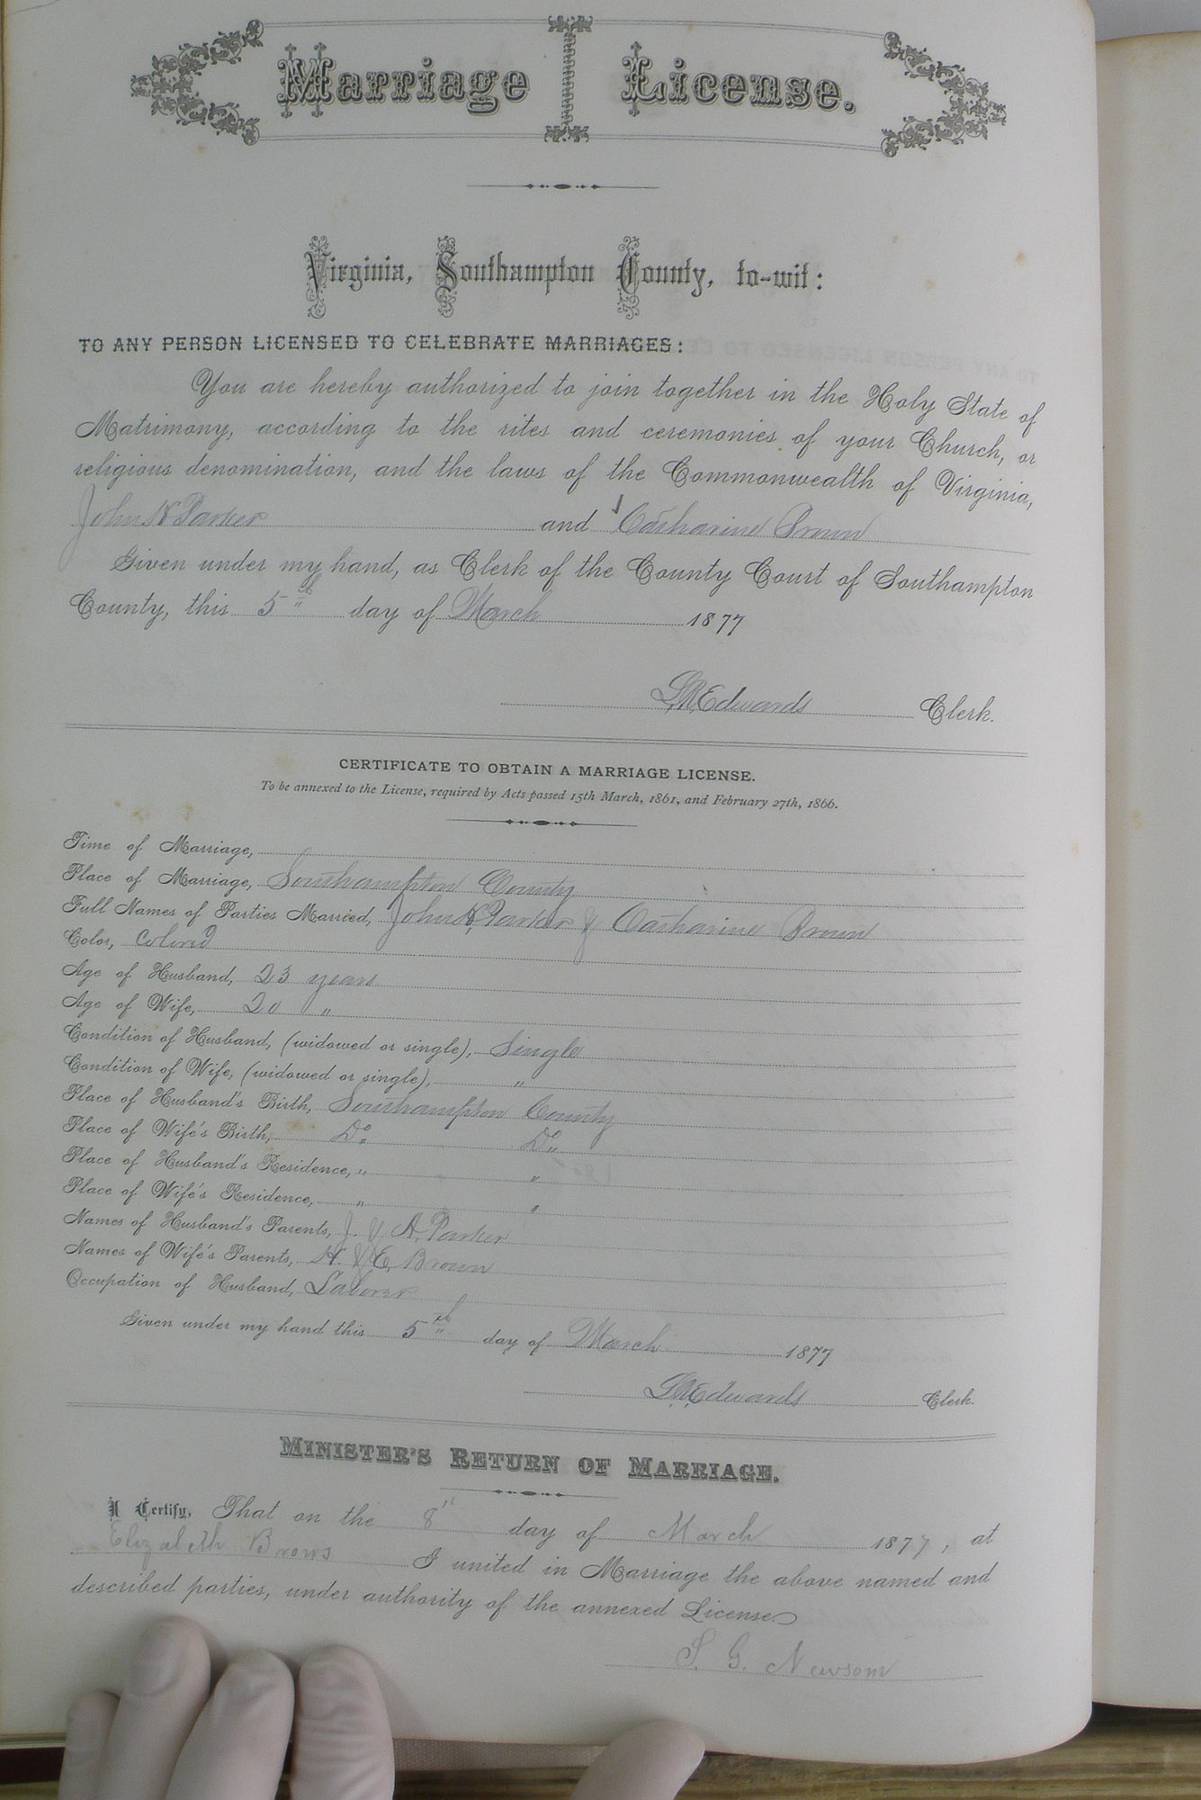 Marriage License.
Virginia, Southampton County, to-wit:
TO ANY PERSON LICENSED TO CELEBRATE MARRIAGES:
You are hereby authorized to join together in the Holy State of
Matrimony, according to the rites and ceremonies of your Church, or
religious denomination, and the laws of the Commonwealth of Virginia,
John H Parker and Catharine Brown
Given under my hand, as Clerk of the County Court of Southampton
County, this 5th day of March 1877
L.R. Edwards Clerk.
CERTIFICATE TO OBTAIN A MARRIAGE LICENSE.
To be annexed to the License, required by Acts passed 15th March, 1861, and February 27th, 1866.
Time of Marriage,
Place of Marriage, Southampton County
Full Names of Parties Married, John H Parker & Catharine Brown
Color, Colored
Age of Husband, 23 years
Age of Wife, 20 "
Condition of Husband, (widowed or single), Single
Condition of Wife, (widowed or single), "
Place of Husband's Birth, Southampton County
Place of Wife's Birth, Do Do
Place of Husband's Residence, " "
Place of Wife's Residence, " "
Names of Husband's Parents, J. & A. Parker
Names of Wife's Parents, H. & C. Brown
Occupation of Husband, Laborer
Given under my hand this 5th day of March 1877
L.R. Edwards Clerk.
MINISTER'S RETURN OF MARRIAGE.
I Certify, That on the 8" day of March 1877, at
Elizabeth Browns I united in Marriage the above named and
described parties, under authority of the annexed License.
S. G. Newsom